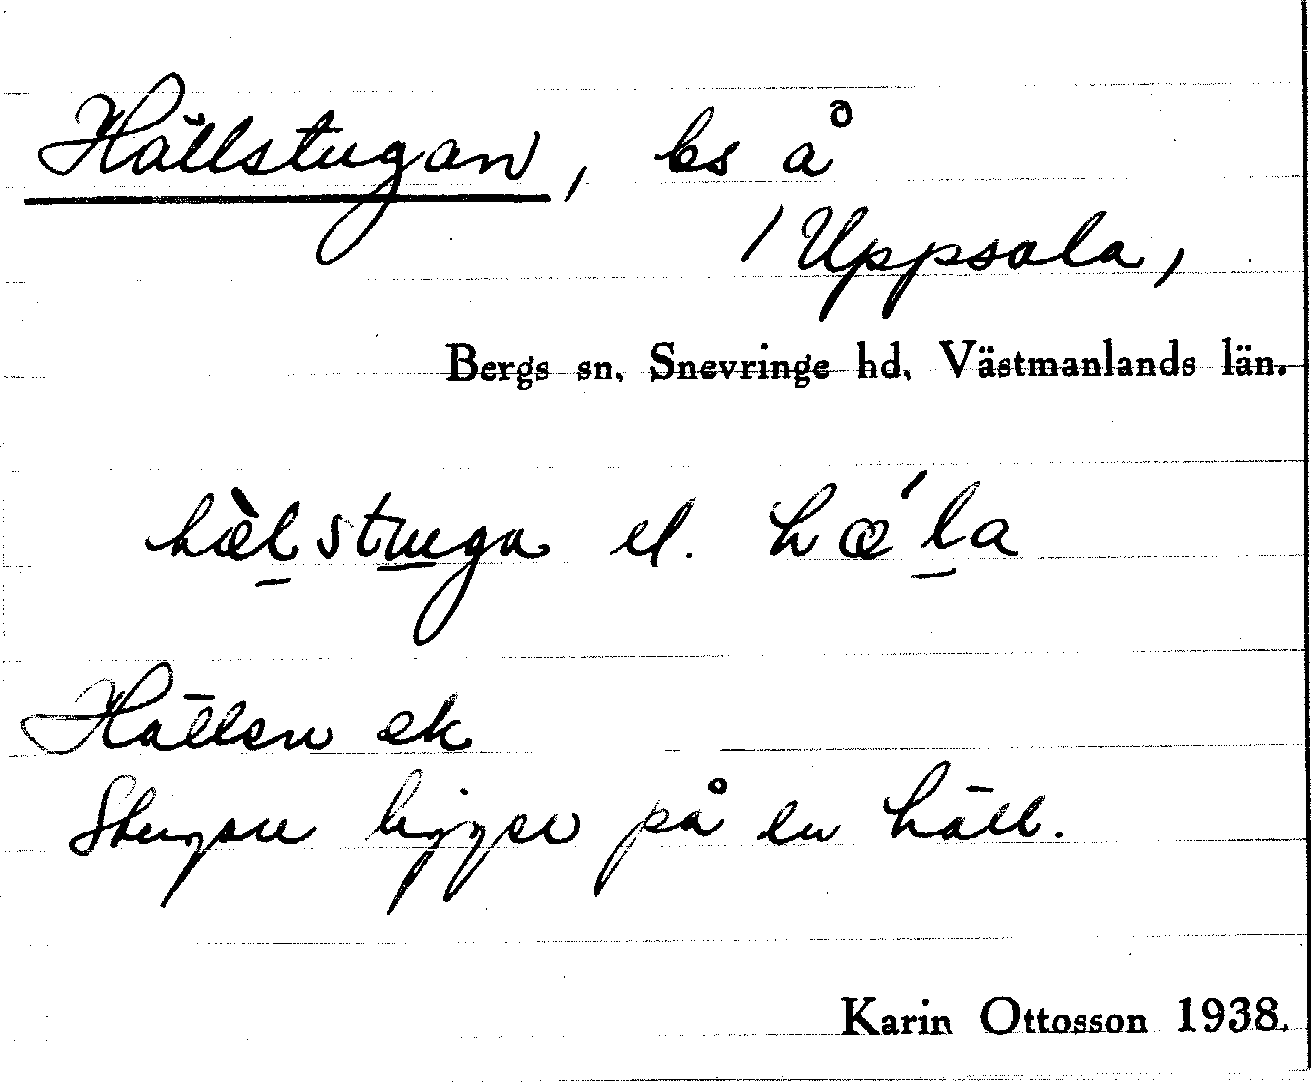 Hällstugan, bs å
/ Uppsala,
Bergs sn, Snevringe hd, Västmanlands län.
hæ̀l̠stu̠ga el. hæ´l̠a
Hällen ek
Stugan ligger på en häll.
Karin Ottosson 1938.